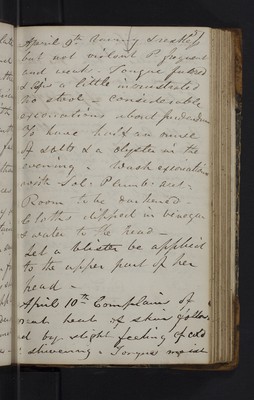 April 9th Raving & restless
but not violent P frequent
and weak. Tongue furred
& lips a little incrustated
No stool - considerable
excoriations about pudendum
To have half an ounce
of salts & a clyster in the
evening. Wash excoriations
with Sol: Plumb: Acet:
Room to be darkened -
Cloths dipped in vinegar
& water to the head -
Let a blister be applied
to the upper part of her
head -
April 10th Complains of
great heat of skin follow
ed by slight feeling of cold
& shivering. Tongue moist